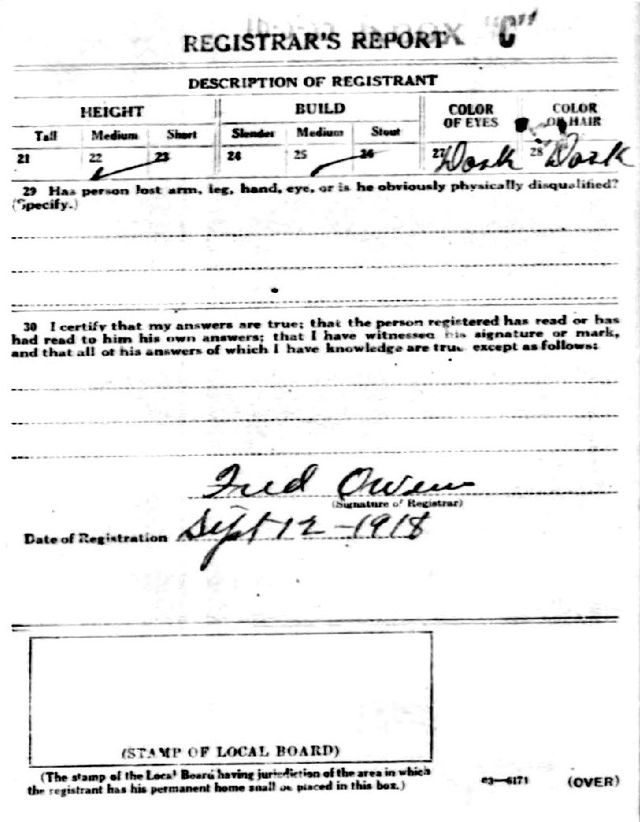 REGISTRAR'S REPORT "C"
DESCRIPTION OF REGISTRANT
HEIGHT BUILD COLOR OF EYES COLOR OF HAIR
Tall Medium Short Slender Medium Stout
21 22 23 24 25 26 27 Dark 28 Dark
29 Has person lost arm, leg, hand, eye, or is he obviously physically disqualified?
(Specify.)
30 I certify that my answers are true; that the person registered has read or has
had read to him his own answers; that I have witnessed his signature or mark,
and that all of his answers of which I have knowledge are true, except as follows:
Fred Owens
(Signature of Registrar)
Date of Registration Sept 12-1918
(STAMP OF LOCAL BOARD)
(The stamp of the Local Board having jurisdiction of the area in which
the registrant has his permanent home shall be placed in this box.)
03-6171 (OVER)